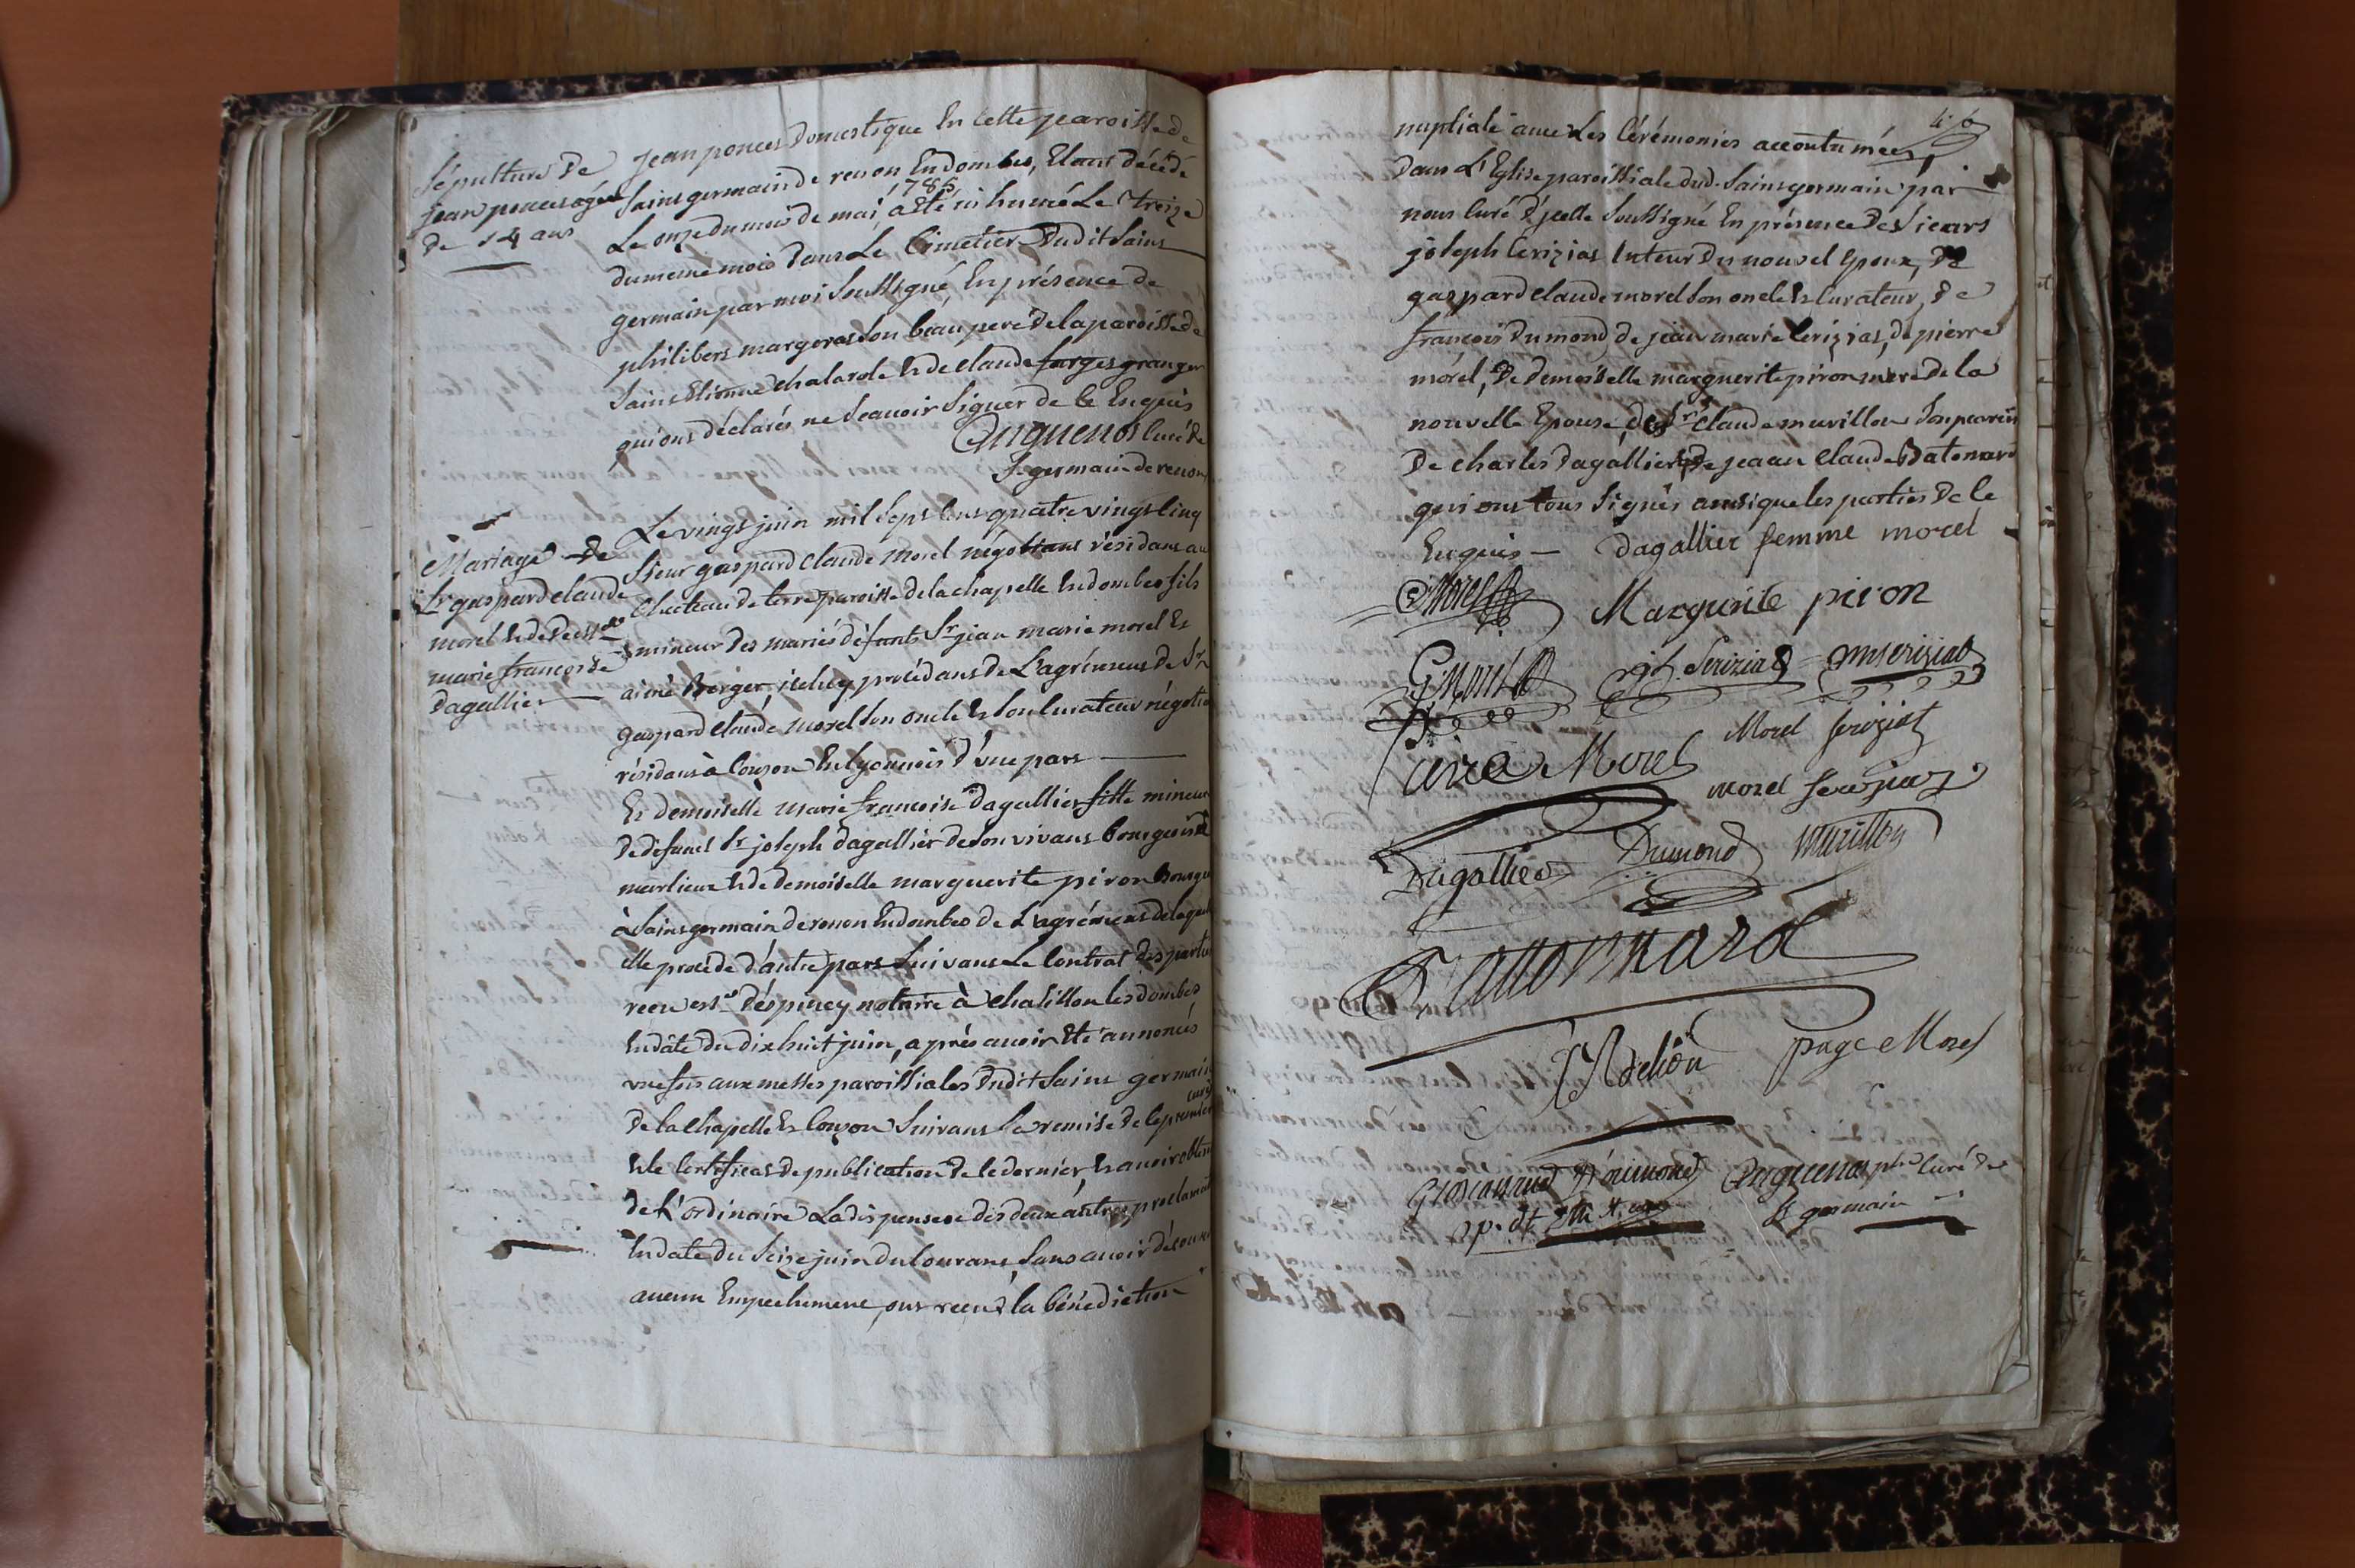 Sépulture de
jean ponces agé
de 14 ans
jean ponces Domestique En cette paroisse de
Saint germain de renon En dombes, Etant décédé
1785
Le onze du mois de mai, a Eté inhumé Le treize
du meme mois dans Le Cimetier Dudit Saint
germain par moi Soussigné, En présence de
philibert margeron son beau pere de la paroisse de
Saint Etienne chalarole & de claude farges granger
qui ont déclarés ne Scavoir Signer de ce Enquis
Curé de
St germain de renon
Mariage de
Sr gaspard claude
morel & de Demlle
marie francoise
Dagallier
Le vingt juin mil Sept Cent quatre vingt Cinq
Sieur gaspard Claude morel négotiant résidant au
Chateau de terre paroisse de la chapelle En dombes fils
mineur des mariés défunts Sr jean marie morel Et
aimé Berger, icelluy procédant de L'agrément de Sr
gaspard claude morel Son oncle Et Son Curateur négotia
résidant à Couzon En lyonnois d'une part
Et demoiselle marie francoise Dagallier fille mineure
De défunt Sr joseph Dagallier de son vivant bourgeois de
marlieux & de demoiselle marguerite piron Bourge
à Saint germain de renon En dombes de L'agrément de laquel
elle procede d'autre part Suivant Le Contrat des parties
recu Despiney notaire à chatillon les dombes
En date du dix huit juin, après avoir Eté annoncés
une fois aux messes paroissiales Dudit Saint germain
De la Chapelle Et Couzon Suivant La remise de ce premier
curé
& le Certificat de publication de ce dernier, & avoir obtenu
de L'ordinaire La dispense des deux autres proclamat
En date du Seize juin du Courant, Sans avoir découvert
aucun Empechement, ont recu la bénédiction
nuptiale avec Les Cérémonies accoutumées,
Dans L'Eglise paroissiale dud. Saint germain par
nous Curé d'jcelle Soussigné En présence des Sieurs
joseph Cerizias tuteur du nouvel Epoux, de
gaspard claude morel Son oncle & Curateur, de
francois Dumond, de jean marie Cerizias, de pierre
morel, De demoiselle marguerite piron mere de la
nouvelle Epouse, de Sr claude murillon Son parein
De charles dagallier, de jeaan Claude Batonard
qui ont tous Signés ainsi que les parties de ce
Enquis — Dagallier femme morel
Morel Marguerite piron
Seriziat
Morel Seriziat
Morel
morel
Dagallier Dumond Murillon
page Morel
curé de
St germain